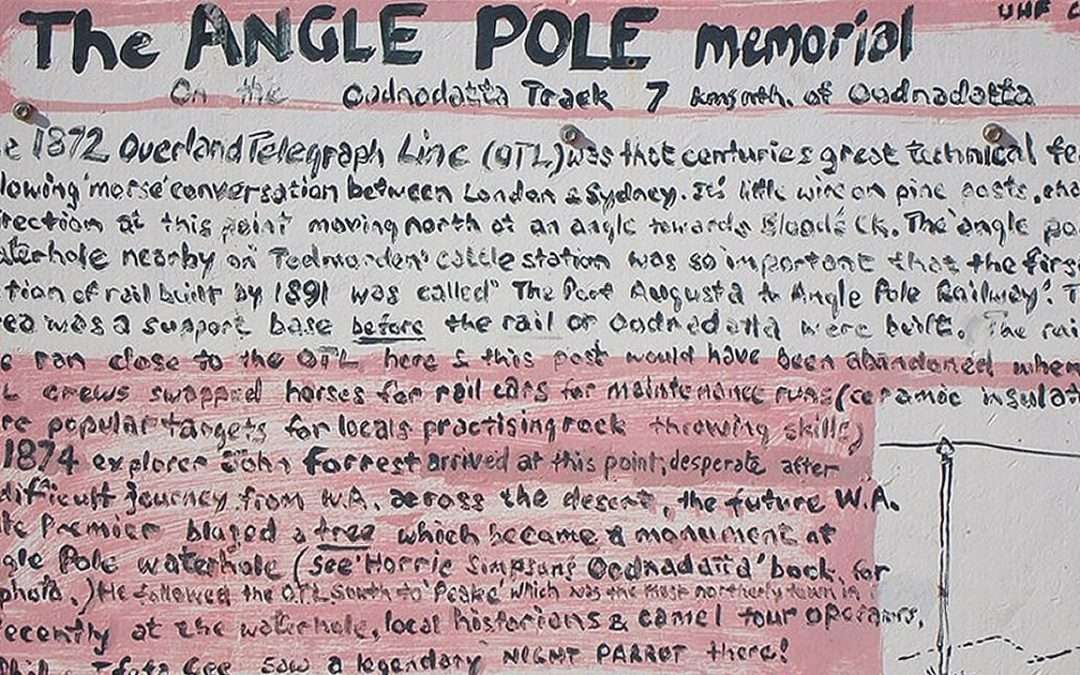 The ANGLE POLE memorial
UHF C
On the Oodnadatta Track 7 kms nth. of Oodnadatta
e 1872 Overland Telegraph Line (OTL) was that centuries great technical fe
lowing 'morse' conversation between London & Sydney. It's little wire on pine posts, cha
rection at this point moving north at an angle towards Bloods Ck. The 'angle po
aterhole nearby on 'Todmorden' cattle station was so important that the firs
tion of rail built by 1891 was called "The Port Augusta to Angle Pole Railway". T
ea was a support base before the rail or Oodnadatta were built. The rai
e ran close to the OTL here & this post would have been abandoned when
L crews swapped horses for rail cars for maintenance runs (ceramic insulat
re popular targets for locals practising rock throwing skills)
1874 explorer John Forrest arrived at this point, desperate after
difficult journey from W.A. across the desert, the future W.A.
te Premier blazed a tree which became a monument at
gle Pole waterhole (see 'Horrie Simpsons Oodnadatta' book, for
photo.) He followed the OTL south to 'Peake' which was the most northerly town in
ecently at the waterhole, local historians & camel tour operators,
Phil Gee saw a legendary NIGHT PARROT there!